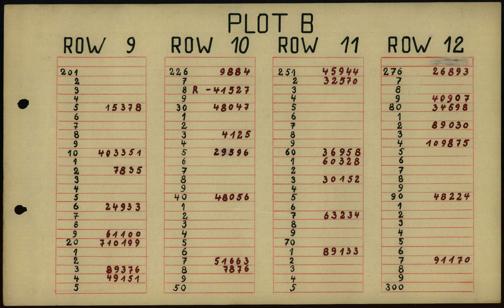 PLOT B
ROW 9
201
2
3
4
5 15378
6
7
8
9
10 403351
1
2 7835
3
4
5
6 24933
7
8
9 61100
20 710199
1
2
3 89376
4 49151
5
ROW 10
226 9884
7
8 R - 41527
9
30 48047
1
2
3 4125
4
5 29596
6
7
8
9
40 48056
1
2
3
4
5
6
7 51663
8 7876
9
50
ROW 11
251 45944
2 32570
3
4
5
6
7
8
9
60 36958
1 60328
2
3 30152
4
5
6
7 63234
8
9
70
1 89133
2
3
4
5
ROW 12
276 26893
7
8
9 40907
80 34698
1
2 89030
3
4 109875
5
6
7
8
9
90 48224
1
2
3
4
5
6
7 91170
8
9
300